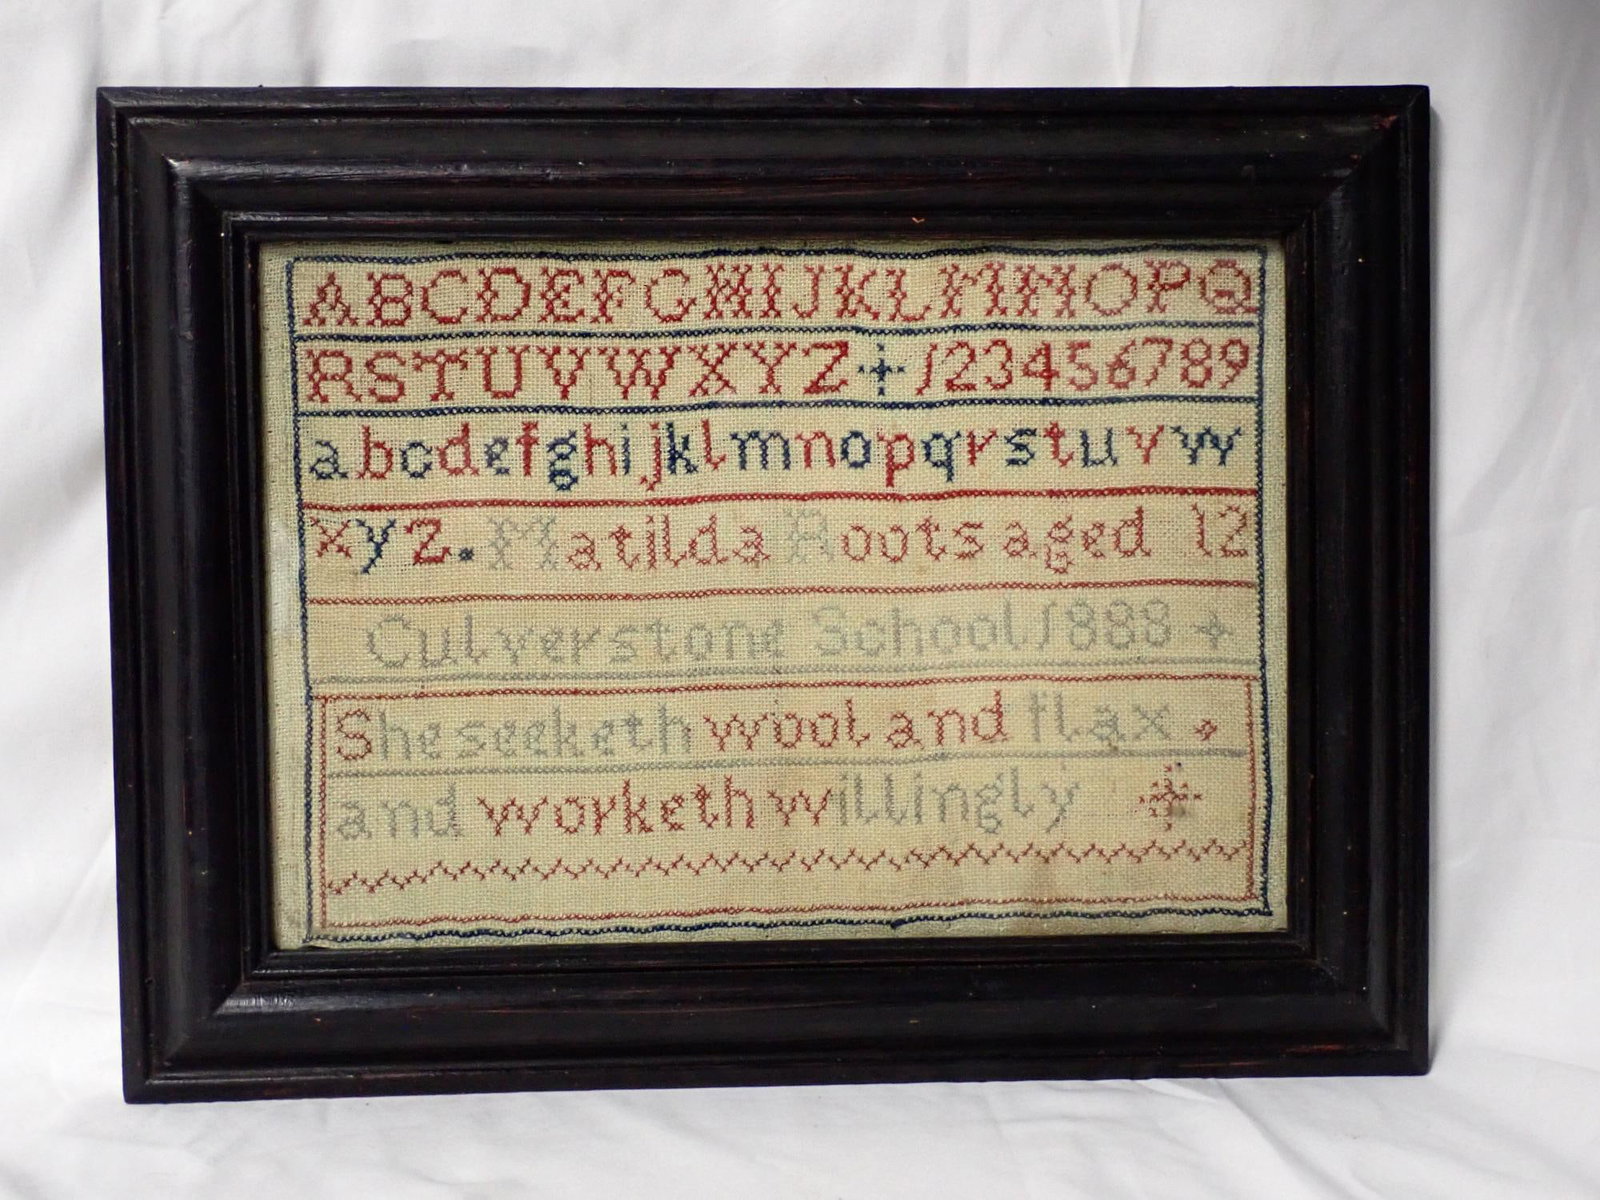 ABCDEFGHIJKLMNOPQ
RSTUVWXYZ 123456789
abcdefghijklmnopqrstuvw
xyz. Matilda Roots aged 12
Culverstone School 1888
She seeketh wool and flax.
and worketh willingly